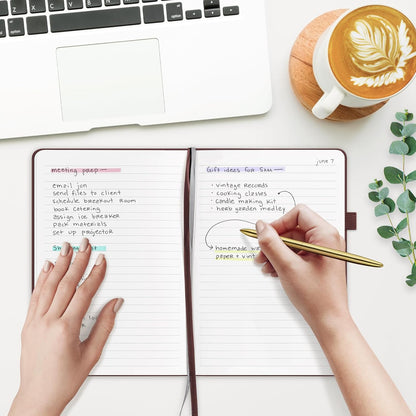 meeting prep
email jon
send files to client
schedule breakout room
book catering
assign ice breaker
pack materials
set up projector
June 7
Gift ideas for Sam
• vintage records
• cooking classes
• candle making kit
• herb garden
homemade
paper +